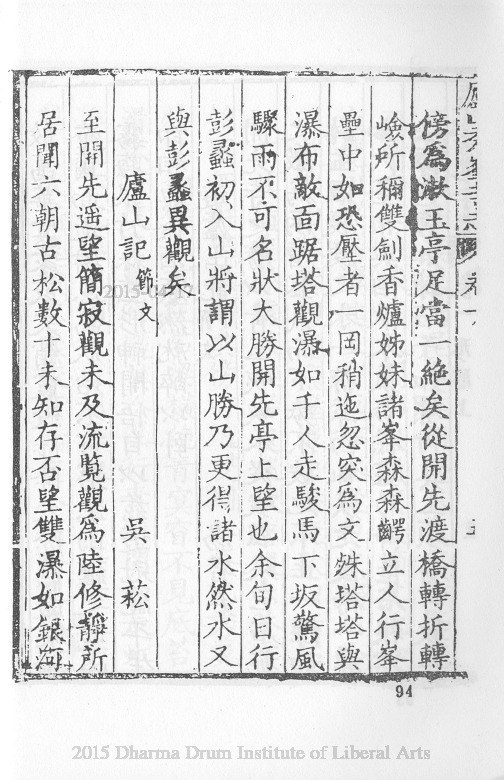 傍為漱玉亭足當一絕矣從開先渡橋轉折轉
嶮所稱雙劍香爐姊妹諸峯森森齶立人行峯
壘中如恐壓者一岡稍迤忽突為文殊塔塔與
瀑布敵面踞塔觀瀑如千人走駿馬下坂驚風
驟雨不可名狀大勝開先亭上望也余旬日行
彭蠡初入山將謂以山勝乃更得諸水然水又
與彭蠡異觀矣
廬山記節文 吳菘
至開先遥望簡寂觀未及流覧觀為陸修靜所
居聞六朝古松數十未知存否望雙瀑如銀河
94
2015 Dharma Drum Institute of Liberal Arts